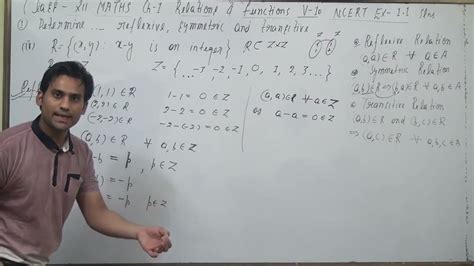 CLASS - XII MATHS Ch-I Relations & functions V-10 NCERT Ex-1.1
① Determine ... reflexive, Symmetric and transitive
R = {(x,y): x-y is an integer} R⊂Z×Z
Z = {...-3, -2, -1, 0, 1, 2, 3...}
1)∈R 1-1=0∈Z
2)∈R 2-2=0∈Z
(-2,-2)∈R -2-(-2)=0∈Z
(a,a)∈R ∀ a∈Z
a-a=0∈Z
b)∈R ∀ a,b∈Z
-b = p, p∈Z
= -p
= -p p∈Z
Reflexive Relation
(a,a)∈R ∀ a∈A
Symmetric Relation
(a,b)∈R ⇒ (b,a)∈R
Transitive Relation
(a,b)∈R and (b,c)∈R
⇒ (a,c)∈R ∀ a,b,c∈A